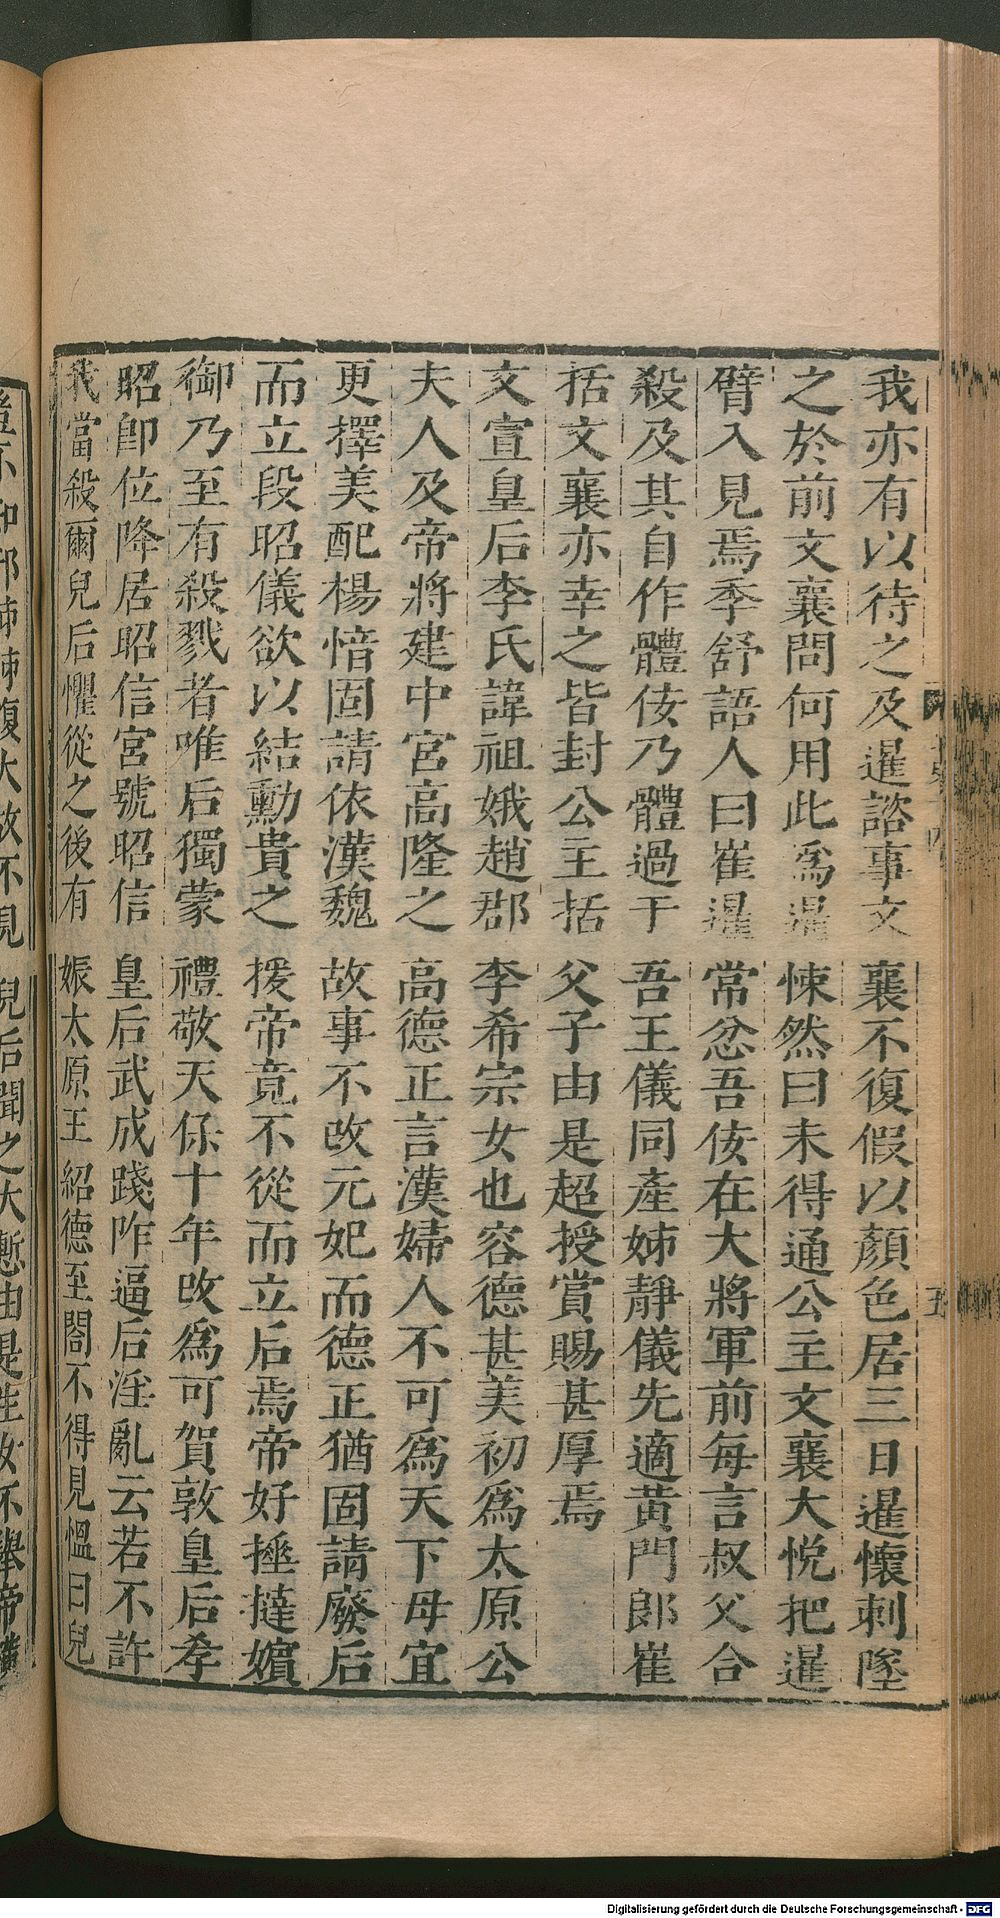 我亦有以待之及暹諮事文襄不復假以顏色居三日暹懷刺墜
之於前文襄問何用此爲暹悚然曰未得通公主文襄大悅把暹
臂入見焉季舒語人曰崔暹常忿吾佞在大將軍前每言叔父合
殺及其自作體佞乃體過于吾王儀同產姊靜儀先適黃門郎崔
括文襄亦幸之皆封公主括父子由是超授賞賜甚厚焉
文宣皇后李氏諱祖娥趙郡李希宗女也容德甚美初爲太原公
夫人及帝將建中宮高隆之高德正言漢婦人不可爲天下母宜
更擇美配楊愔固請依漢魏故事不改元妃而德正猶固請廢后
而立段昭儀欲以結勳貴之援帝竟不從而立后焉帝好捶撻嬪
御乃至有殺戮者唯后獨蒙禮敬天保十年改爲可賀敦皇后孝
昭卽位降居昭信宮號昭信皇后武成踐咋逼后淫亂云若不許
我當殺爾兒后懼從之後有娠太原王紹德至閤不得見慍曰兒
不知邪姊姊腹大故不見兒后聞之大慙由是生女不舉帝
五
Digitalisierung gefördert durch die Deutsche Forschungsgemeinschaft - DFG